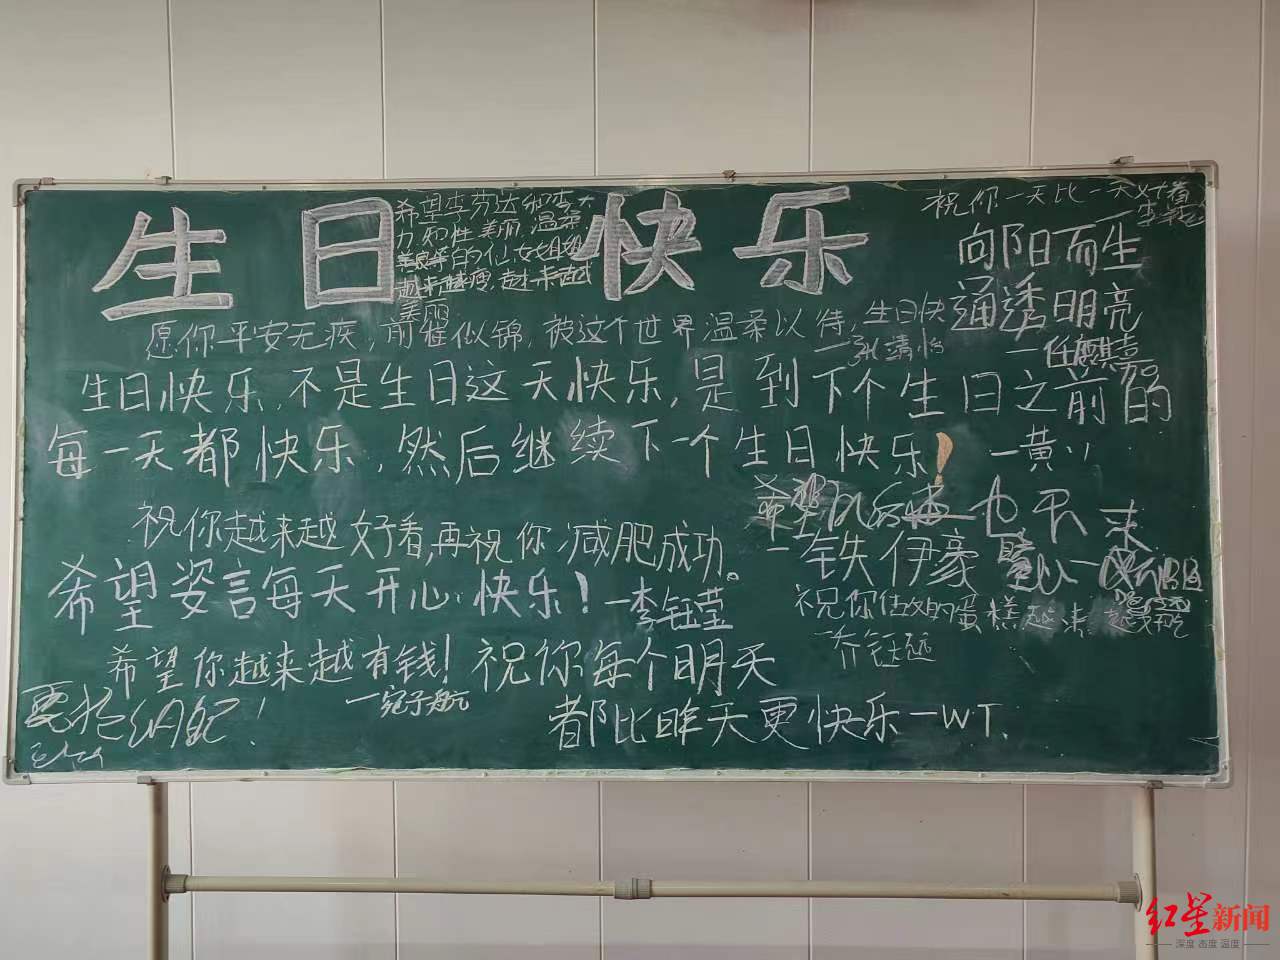 生日快乐
希望李芬达
力知性美丽,温柔
善良等的仙女姐姐
越来越瘦,越来越
美丽
祝你一天比一天好看
向阳而生
通透明亮
一任麒嘉
愿你平安无疾,前程似锦,被这个世界温柔以待,生日快
一张靖怡
生日快乐,不是生日这天快乐,是到下个生日之前的
每一天都快乐,然后继续下一个生日快乐! 一黄
祝你越来越好看,再祝你减肥成功。
希望
一铁伊豪
希望姿言每天开心快乐! 一李钰莹
祝你做的蛋糕越来越
一乔钰
希望你越来越有钱!
一宛子航
祝你每个明天
都比昨天更快乐一WT.
红星新闻
深度 态度 温度